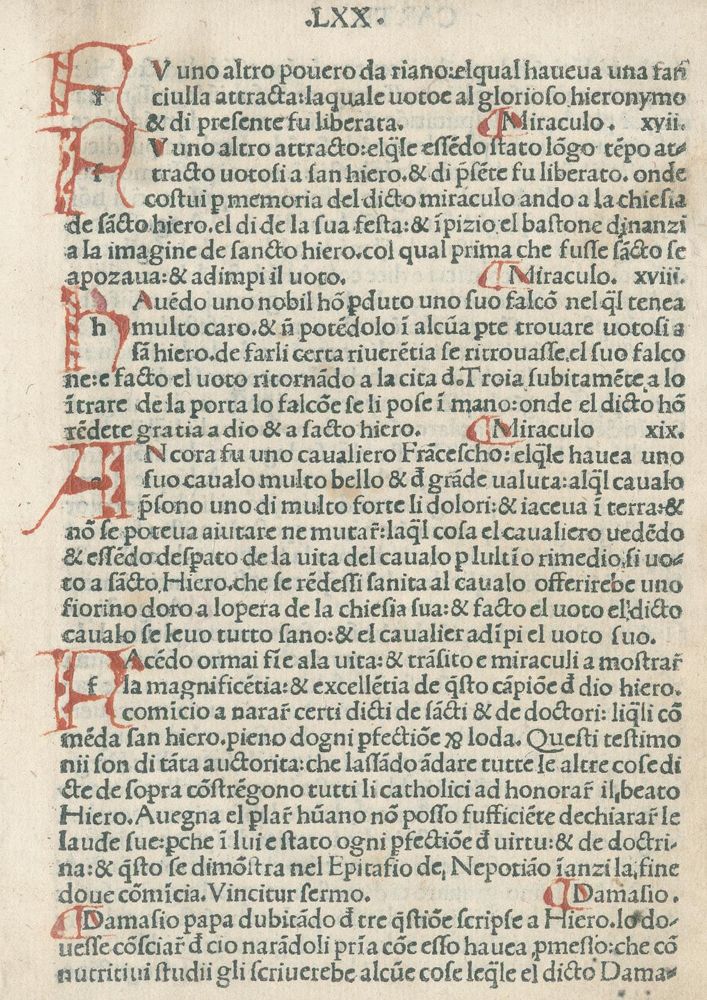 .LXX.
FV uno altro pouero da riano:elqual haueua una fan
ciulla attracta:laquale uotoe al glorioso hieronymo
& di presente fu liberata. Miraculo. xvii.
FV uno altro attracto:elqłe essēdo stato lōgo tēpo at-
tracto uotosi a san hiero.& di p̄sēte fu liberato. onde
costui p memoria del dicto miraculo ando a la chiesia
de sācto hiero.el di de la sua festa:& īpizio el bastone dinanzi
a la imagine de sancto hiero.col qual prima che fusse sācto se
apozaua:& adimpi il uoto. Miraculo. xviii.
hAuēdo uno nobil hō pduto uno suo falcō nelql̄ tenea
multo caro.& n̄ potēdolo ī alcūa pte trouare uotosi a
sā hiero.de farli certa riuerētia se ritrouasse.el suo falco
ne:e facto el uoto ritornādo a la cita d.Troia subitamēte a lo
ītrare de la porta lo falcōe se li pose ī mano:onde el dicto hō
rēdete gratia a dio & a sacto hiero. Miraculo xix.
ANcora fu uno caualiero Frācescho:elqłe hauea uno
suo caualo multo bello & đ grāde ualuta:alql̄ caualo
p̄sono uno di multo forte li dolori:& iaceua ī terra:&
nō se poteua aiutare ne mutar̄:laql̄ cosa el caualiero uedēdo
& essēdo despato de la uita del caualo p lultīo rimedio,si uo-
to a sācto Hiero.che se rēdessi sanita al caualo offerirebe uno
fiorino doro a lopera de la chiesia sua:& facto el uoto el dicto
caualo se leuo tutto sano:& el caualier adīpi el uoto suo.
FAcēdo ormai fīe ala uita:& trāsito e miraculi a mostrar̄
la magnificētia:& excellētia de q̄sto cāpiōe đ dio hiero.
comīcio a narar̄ certi dicti de sācti & de doctori: liql̄i cō
mēda san hiero.pieno dogni pfectiōe ⁊ loda. Questi testimo
nii son di tāta auctorita:che lassādo ādare tutte le altre cose di
cte de sopra cōstrēgono tutti li catholici ad honorar̄ il beato
Hiero.Auegna el plar̄ hūano nō posso fufficiēte dechiarar̄ le
laude sue:pche ī lui e stato ogni pfectiōe đ uirtu:& de doctri-
na:& q̄sto se dimōstra nel Epitafio de Nepotiāo īanzi la fine
doue cōmīcia.Vincitur sermo. Damasio.
Damasio papa dubitādo đ tre q̄stiōe scripse a Hiero.lo do-
uesse cōsciar̄ đ cio narādoli prīa cōe esso hauea pmesso:che cō
nutritiui studii gli scriuerebe alcūe cose leqłe el dicto Dama-